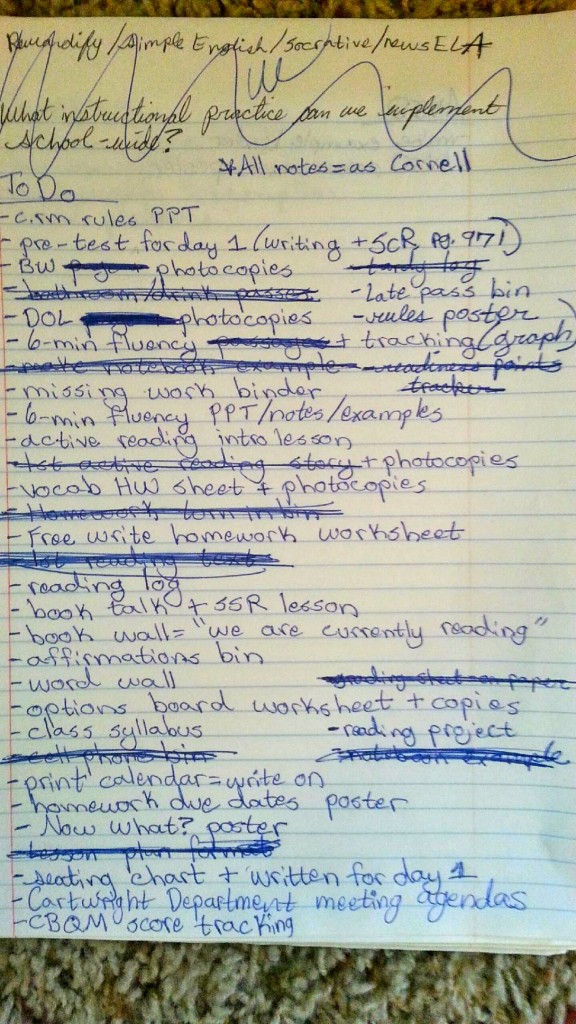 Rewordify/Simple English/Socrative/newsELA
What instructional practice can we implement
school-wide?
*All notes=as Cornell
To Do
- c.rm rules PPT
- pre-test for day 1 (writing + SCR pg. 971)
- BW photocopies - tardy log
- bathroom/drink passes - late pass bin
- DOL photocopies - rules poster
- 6-min fluency passages + tracking (graph)
- make notebook example - readiness points
tracker
- missing work binder
- 6-min fluency PPT/notes/examples
- active reading intro lesson
- 1st active reading story + photocopies
- vocab HW sheet + photocopies
- Homework turn in bin
- Free write homework worksheet
- 1st reading text
- reading log
- book talk + SSR lesson
- book wall= "we are currently reading"
- affirmations bin
- word wall - grading sheet on paper
- options board worksheet + copies
- class syllabus - reading project
- cell phone bin - notebook example
- print calendar=write on
- homework due dates poster
- Now What? poster
- Lesson plan format
- seating chart + written for day 1
- Cartwright Department meeting agendas
- CBQM score tracking